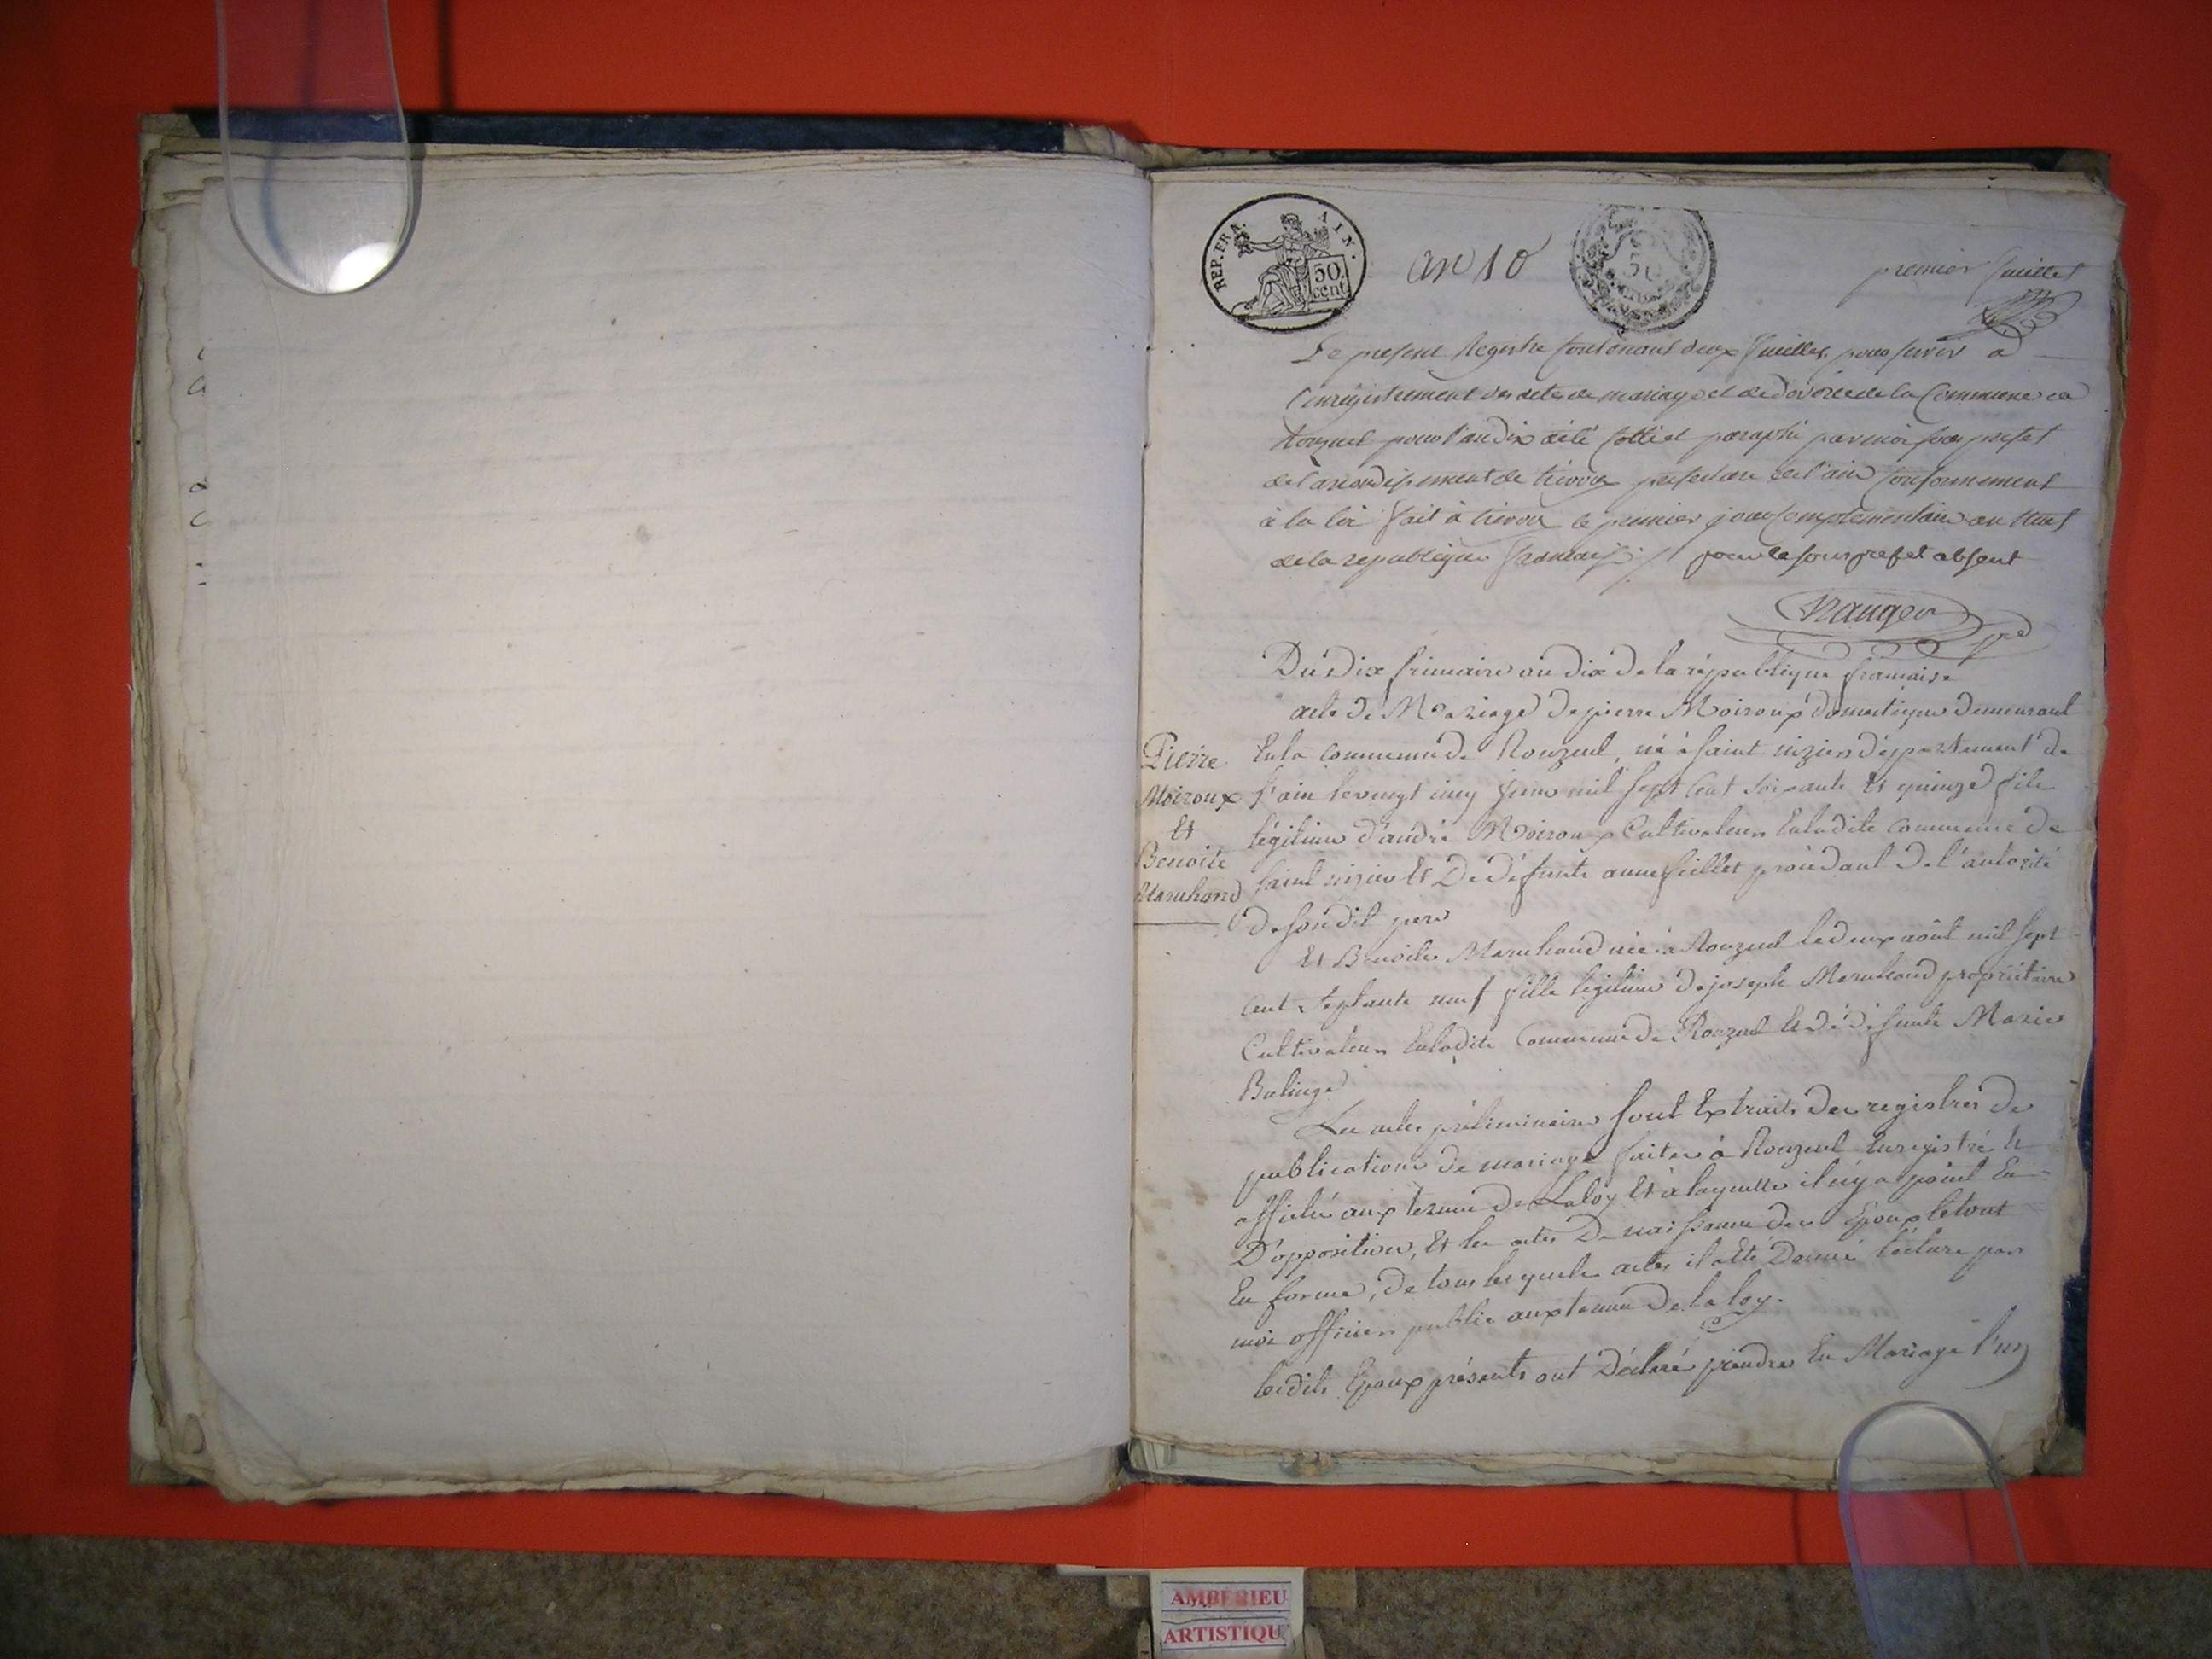 REP. FRA. AIN.
50 cent
an 10
premier feuillet
Le present Registre Contenant deux feuillets pour servir a
l'enregistrement des actes de mariage et de divorce de la Commune de
pour l'an dix a été Cotté et paraphé par moi sous prefet
de l'arrondissement de trevoux prefecture de l'ain Conformement
à la loi fait à trevoux le premier jour complementaire an neuf
de la republique francaise / pour le sous prefet absent
Du dix frimaire an dix de la république francaise
acte de Mariage de pierre Moiroux domestique demeurant
Pierre
Moiroux
Et
Benoite
Marchand
En la commune de Rouzeul, né à saint nizier département de
l'ain le vingt cinq juin mil sept Cent soixante et quinze fils
légitime d'andré Moiroux Cultivateur Enladite commune de
saint nizier Et De défunte anne fillet procédant de l'autorité
de sondit pere
Et Benoite Marchand née à Rouzeul le deux août mil sept
Cent Septante neuf fille légitime de joseph Marchand propriétaire
Cultivateur Enladite Commune de Rouzeul Et de défunte Marie
Les actes préliminaires sont Extraits des registres de
publications de mariage faites à Rouzeul Enregistré Et
affiché aux termes de La loy Et à laquelle il n'y a point Eu
D'opposition, Et les actes De naissance des Epoux le tout
En forme, de tous lesquels actes il a Eté Donné lecture par
moi officier public aux termes de la loy.
lesdits Epoux présents ont Déclaré prendre En Mariage l'un
AMBERIEU
ARTISTIQU